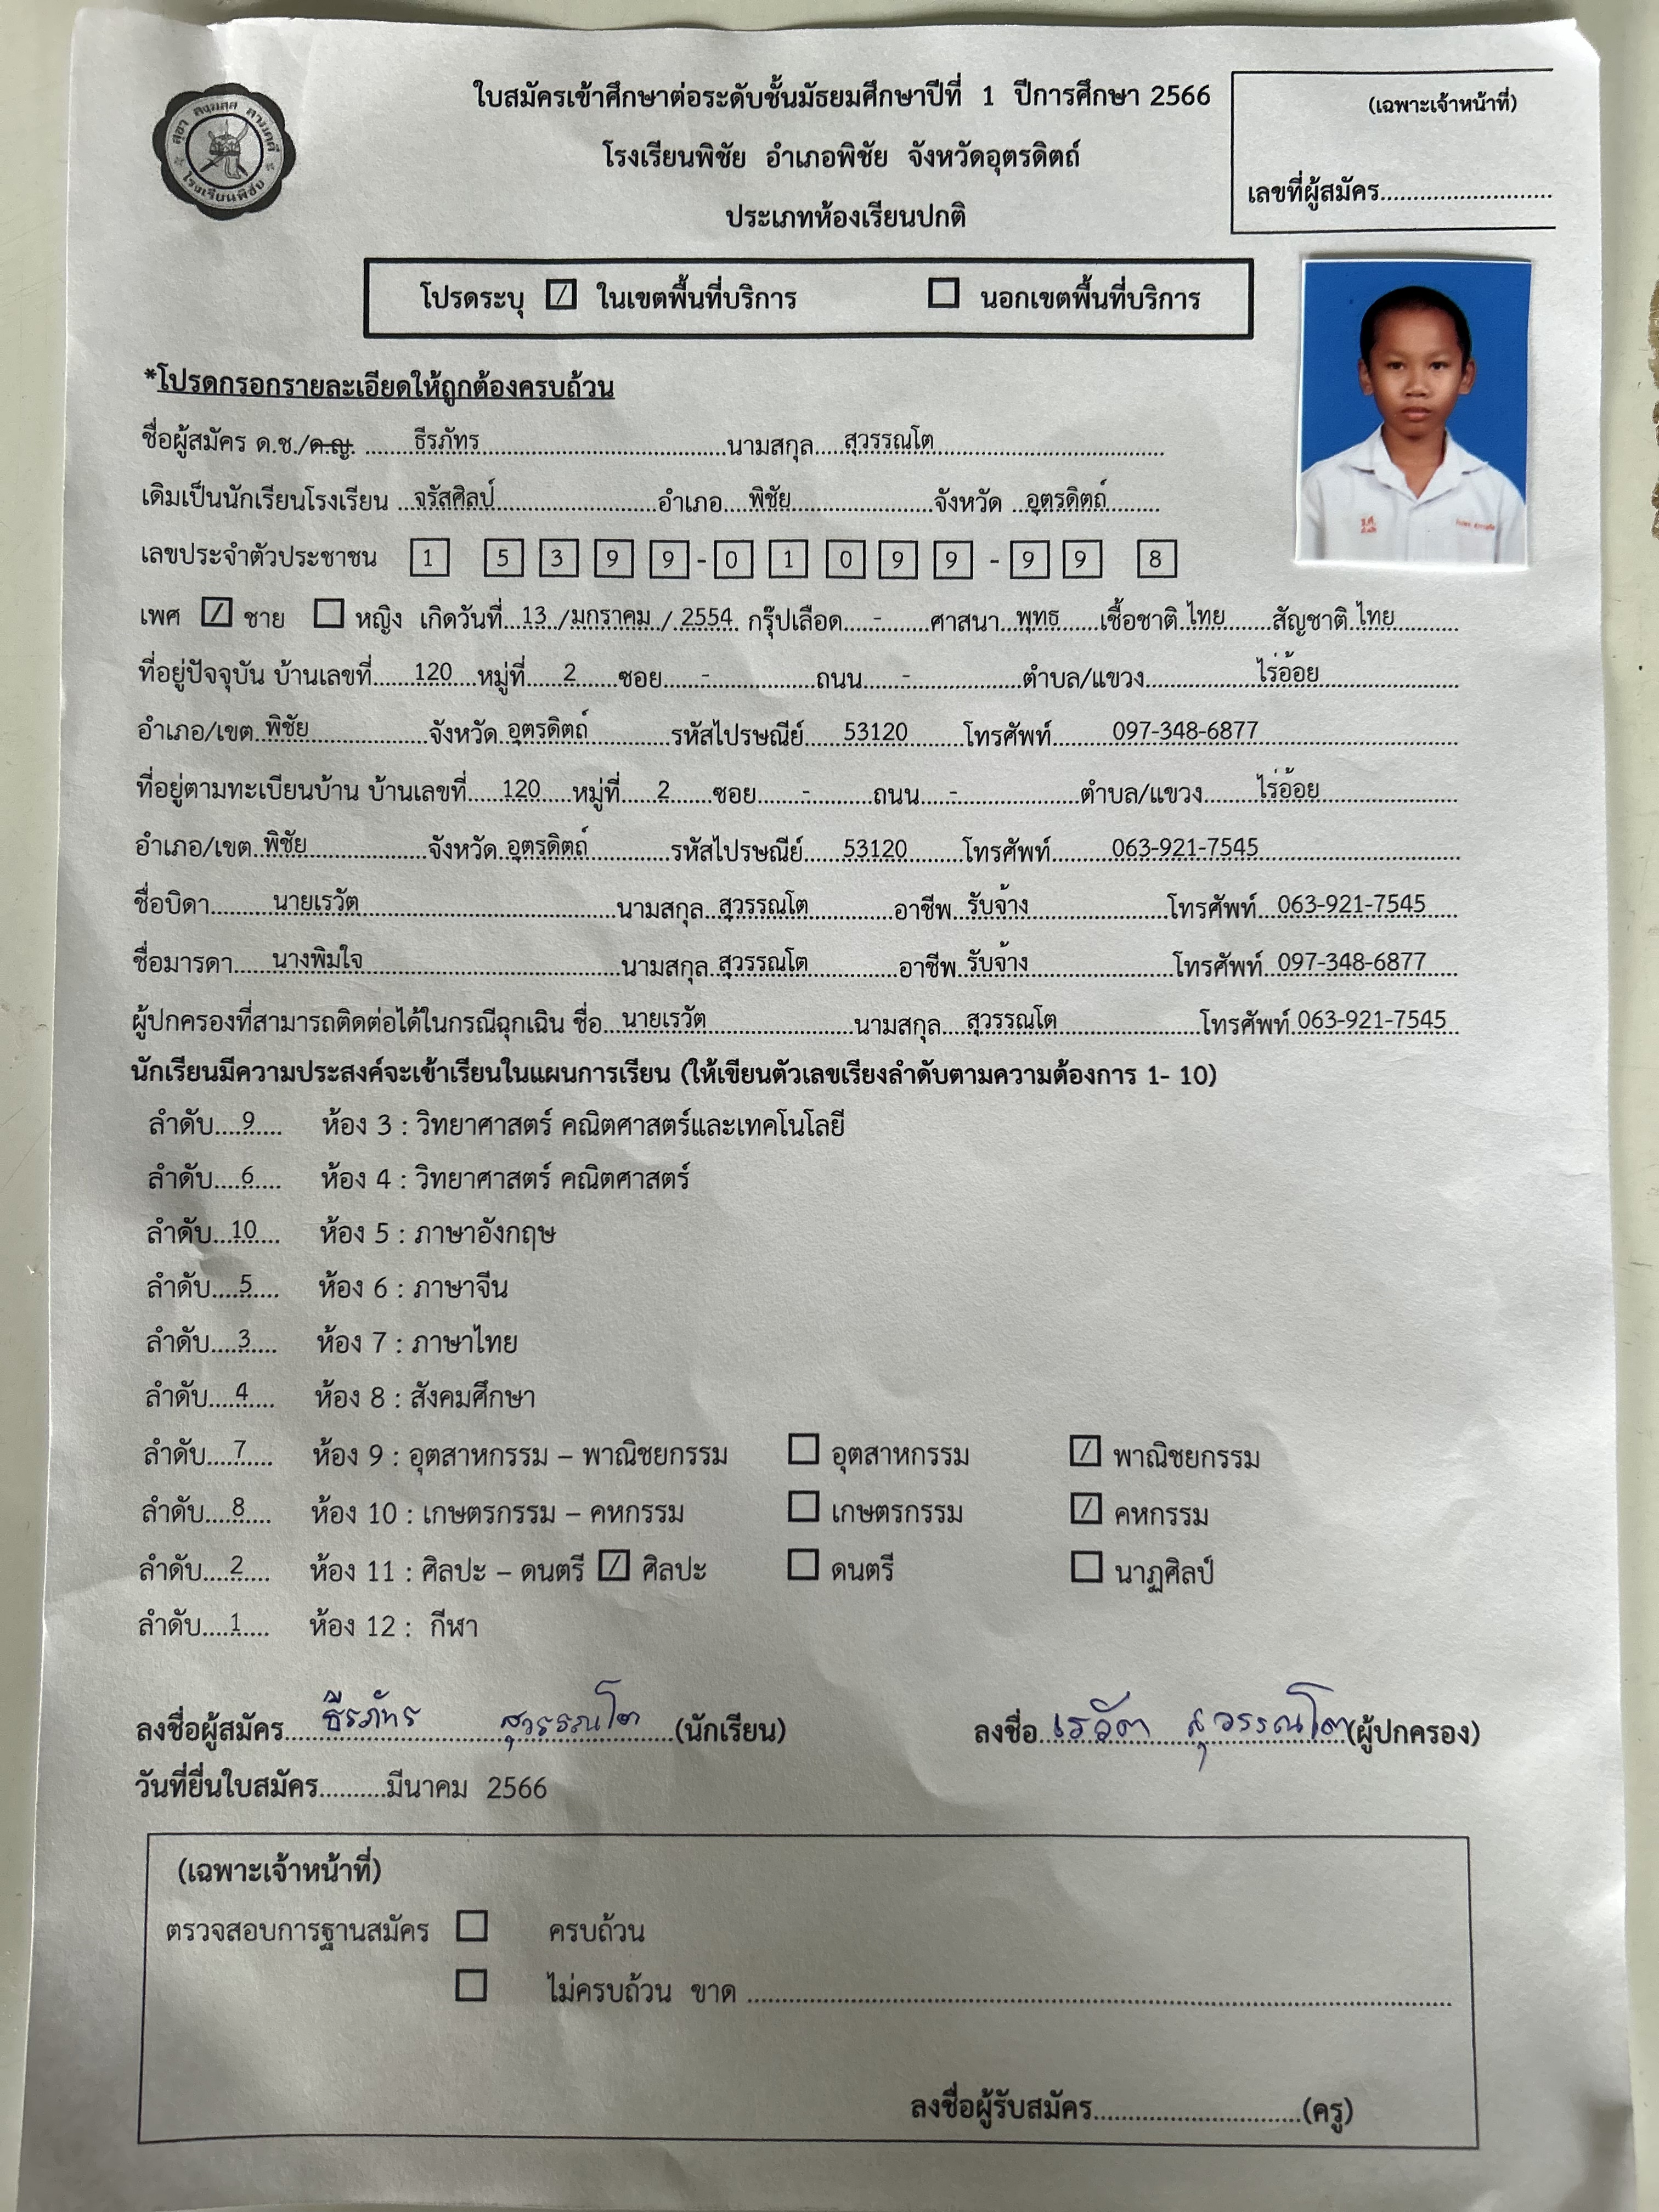 ใบสมัครเข้าศึกษาต่อระดับชั้นมัธยมศึกษาปีที่ 1 ปีการศึกษา 2566
(เฉพาะเจ้าหน้าที่)
โรงเรียนพิชัย อำเภอพิชัย จังหวัดอุตรดิตถ์
เลขที่ผู้สมัคร..........................
ประเภทห้องเรียนปกติ
โรงเรียนพิชัย
โปรดระบุ ☑ ในเขตพื้นที่บริการ ☐ นอกเขตพื้นที่บริการ
*โปรดกรอกรายละเอียดให้ถูกต้องครบถ้วน
ชื่อผู้สมัคร ด.ช./ด.ญ. ธีรภัทร นามสกุล สุวรรณโต
เดิมเป็นนักเรียนโรงเรียน จรัสศิลป์ อำเภอ พิชัย จังหวัด อุตรดิตถ์
เลขประจำตัวประชาชน 1 5 3 9 9 - 0 1 0 9 9 - 9 9 8
เพศ ☑ ชาย ☐ หญิง เกิดวันที่ 13 / มกราคม / 2554 กรุ๊ปเลือด - ศาสนา พุทธ เชื้อชาติ ไทย สัญชาติ ไทย
ที่อยู่ปัจจุบัน บ้านเลขที่ 120 หมู่ที่ 2 ซอย - ถนน - ตำบล/แขวง ไร่อ้อย
อำเภอ/เขต พิชัย จังหวัด อุตรดิตถ์ รหัสไปรษณีย์ 53120 โทรศัพท์ 097-348-6877
ที่อยู่ตามทะเบียนบ้าน บ้านเลขที่ 120 หมู่ที่ 2 ซอย - ถนน - ตำบล/แขวง ไร่อ้อย
อำเภอ/เขต พิชัย จังหวัด อุตรดิตถ์ รหัสไปรษณีย์ 53120 โทรศัพท์ 063-921-7545
ชื่อบิดา นายเรวัต นามสกุล สุวรรณโต อาชีพ รับจ้าง โทรศัพท์ 063-921-7545
ชื่อมารดา นางพิมใจ นามสกุล สุวรรณโต อาชีพ รับจ้าง โทรศัพท์ 097-348-6877
ผู้ปกครองที่สามารถติดต่อได้ในกรณีฉุกเฉิน ชื่อ นายเรวัต นามสกุล สุวรรณโต โทรศัพท์ 063-921-7545
นักเรียนมีความประสงค์จะเข้าเรียนในแผนการเรียน (ให้เขียนตัวเลขเรียงลำดับตามความต้องการ 1- 10)
ลำดับ 9 ห้อง 3 : วิทยาศาสตร์ คณิตศาสตร์และเทคโนโลยี
ลำดับ 6 ห้อง 4 : วิทยาศาสตร์ คณิตศาสตร์
ลำดับ 10 ห้อง 5 : ภาษาอังกฤษ
ลำดับ 5 ห้อง 6 : ภาษาจีน
ลำดับ 3 ห้อง 7 : ภาษาไทย
ลำดับ 4 ห้อง 8 : สังคมศึกษา
ลำดับ 7 ห้อง 9 : อุตสาหกรรม – พาณิชยกรรม ☐ อุตสาหกรรม ☑ พาณิชยกรรม
ลำดับ 8 ห้อง 10 : เกษตรกรรม – คหกรรม ☐ เกษตรกรรม ☑ คหกรรม
ลำดับ 2 ห้อง 11 : ศิลปะ – ดนตรี ☑ ศิลปะ ☐ ดนตรี ☐ นาฏศิลป์
ลำดับ 1 ห้อง 12 : กีฬา
ลงชื่อผู้สมัคร ธีรภัทร สุวรรณโต (นักเรียน) ลงชื่อ เรวัต สุวรรณโต (ผู้ปกครอง)
วันที่ยื่นใบสมัคร..........มีนาคม 2566
(เฉพาะเจ้าหน้าที่)
ตรวจสอบการฐานสมัคร ☐ ครบถ้วน
☐ ไม่ครบถ้วน ขาด ..........................
ลงชื่อผู้รับสมัคร..............................(ครู)